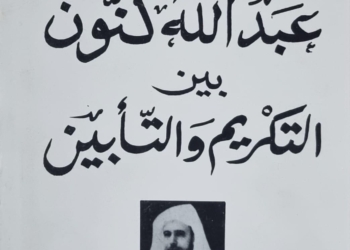 عَبدُ اللّٰه كَنّون
بين
التكريم وَالتّأبين